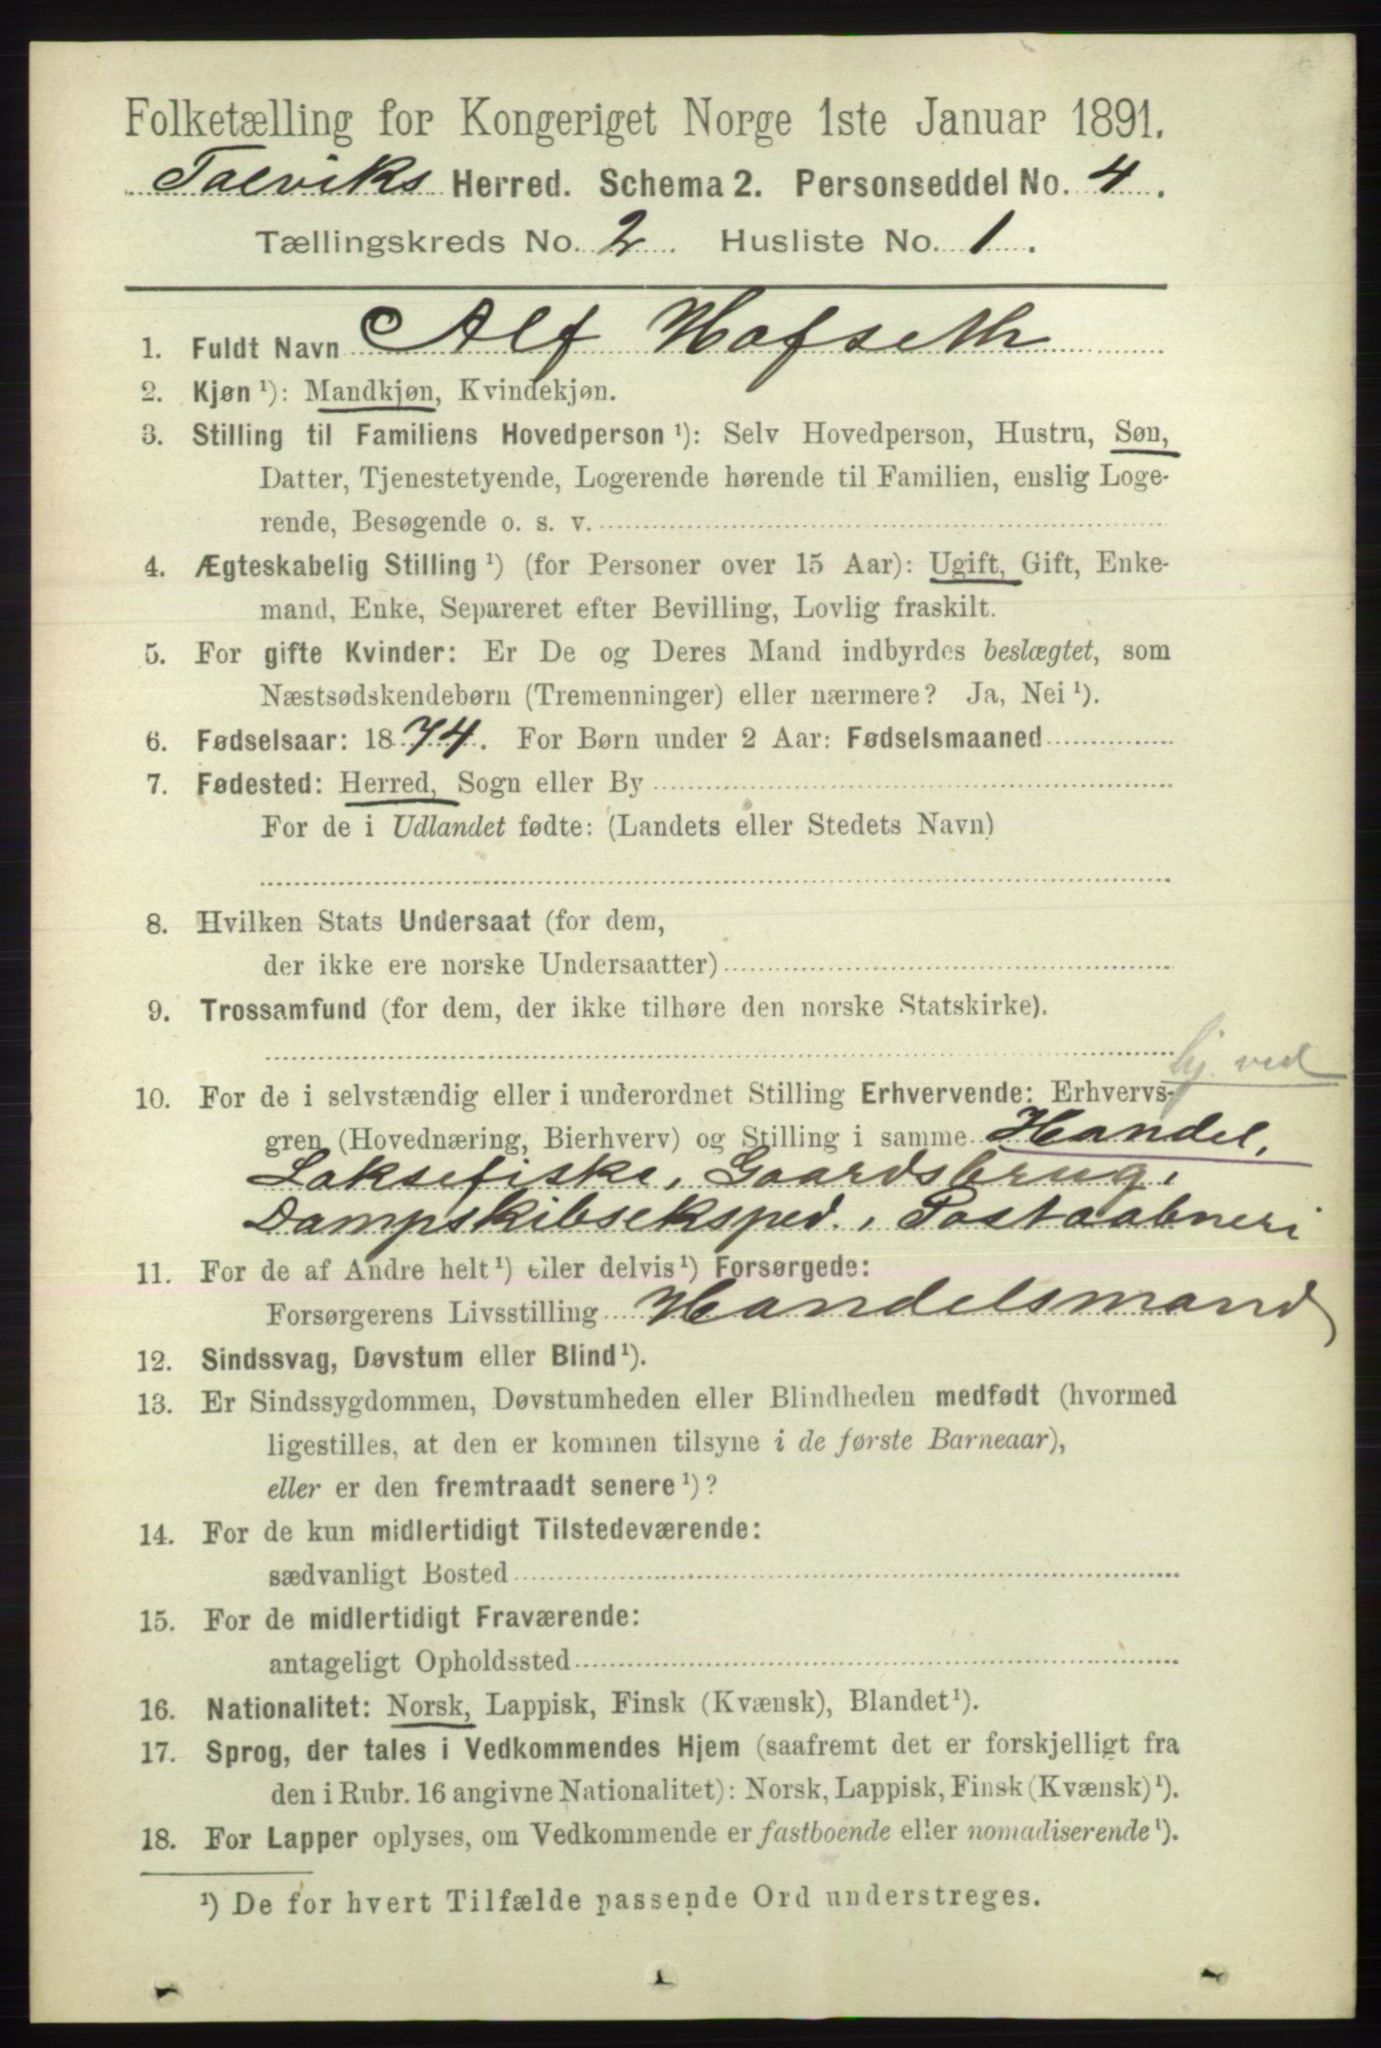 Folketælling for Kongeriget Norge 1ste Januar 1891.
Talviks Herred. Schema 2. Personseddel No. 4.
Tællingskreds No. 2. Husliste No. 1.
1. Fuldt Navn Alf Hofseth
2. Kjøn ¹): Mandkjøn, Kvindekjøn.
3. Stilling til Familiens Hovedperson ¹): Selv Hovedperson, Hustru, Søn,
Datter, Tjenestetyende, Logerende hørende til Familien, enslig Loge-
rende, Besøgende o. s. v.
4. Ægteskabelig Stilling ¹) (for Personer over 15 Aar): Ugift, Gift, Enke-
mand, Enke, Separeret efter Bevilling, Lovlig fraskilt.
5. For gifte Kvinder: Er De og Deres Mand indbyrdes beslægtet, som
Næstsødskendebørn (Tremenninger) eller nærmere? Ja, Nei ¹).
6. Fødselsaar: 1874. For Børn under 2 Aar: Fødselsmaaned
7. Fødested: Herred, Sogn eller By
For de i Udlandet fødte: (Landets eller Stedets Navn)
8. Hvilken Stats Undersaat (for dem,
der ikke ere norske Undersaatter)
9. Trossamfund (for dem, der ikke tilhøre den norske Statskirke).
hj. ved
10. For de i selvstændig eller i underordnet Stilling Erhvervende: Erhvervs-
gren (Hovednæring, Bierhverv) og Stilling i samme Handel,
Laksefiske, Gaardsbrug,
Dampskibseksped., Postaabneri
11. For de af Andre helt ¹) eller delvis ¹) Forsørgede:
Forsørgerens Livsstilling Handelsmand
12. Sindssvag, Døvstum eller Blind ¹).
13. Er Sindssygdommen, Døvstumheden eller Blindheden medfødt (hvormed
ligestilles, at den er kommen tilsyne i de første Barneaar),
eller er den fremtraadt senere ¹)?
14. For de kun midlertidigt Tilstedeværende:
sædvanligt Bosted
15. For de midlertidigt Fraværende:
antageligt Opholdssted
16. Nationalitet: Norsk, Lappisk, Finsk (Kvænsk), Blandet ¹).
17. Sprog, der tales i Vedkommendes Hjem (saafremt det er forskjelligt fra
den i Rubr. 16 angivne Nationalitet): Norsk, Lappisk, Finsk (Kvænsk) ¹).
18. For Lapper oplyses, om Vedkommende er fastboende eller nomadiserende ¹).
¹) De for hvert Tilfælde passende Ord understreges.